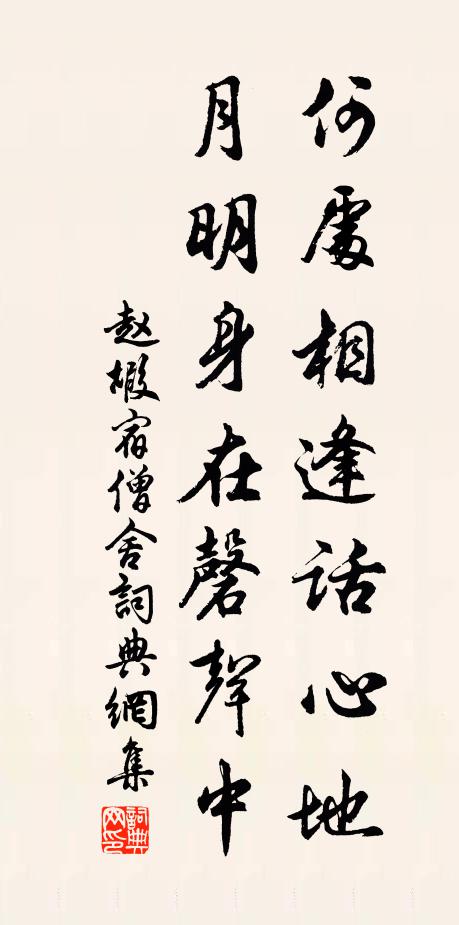 何處相逢話心地
月明身在磬聲中
赵嘏宿僧舍詞典網集
詞典网印